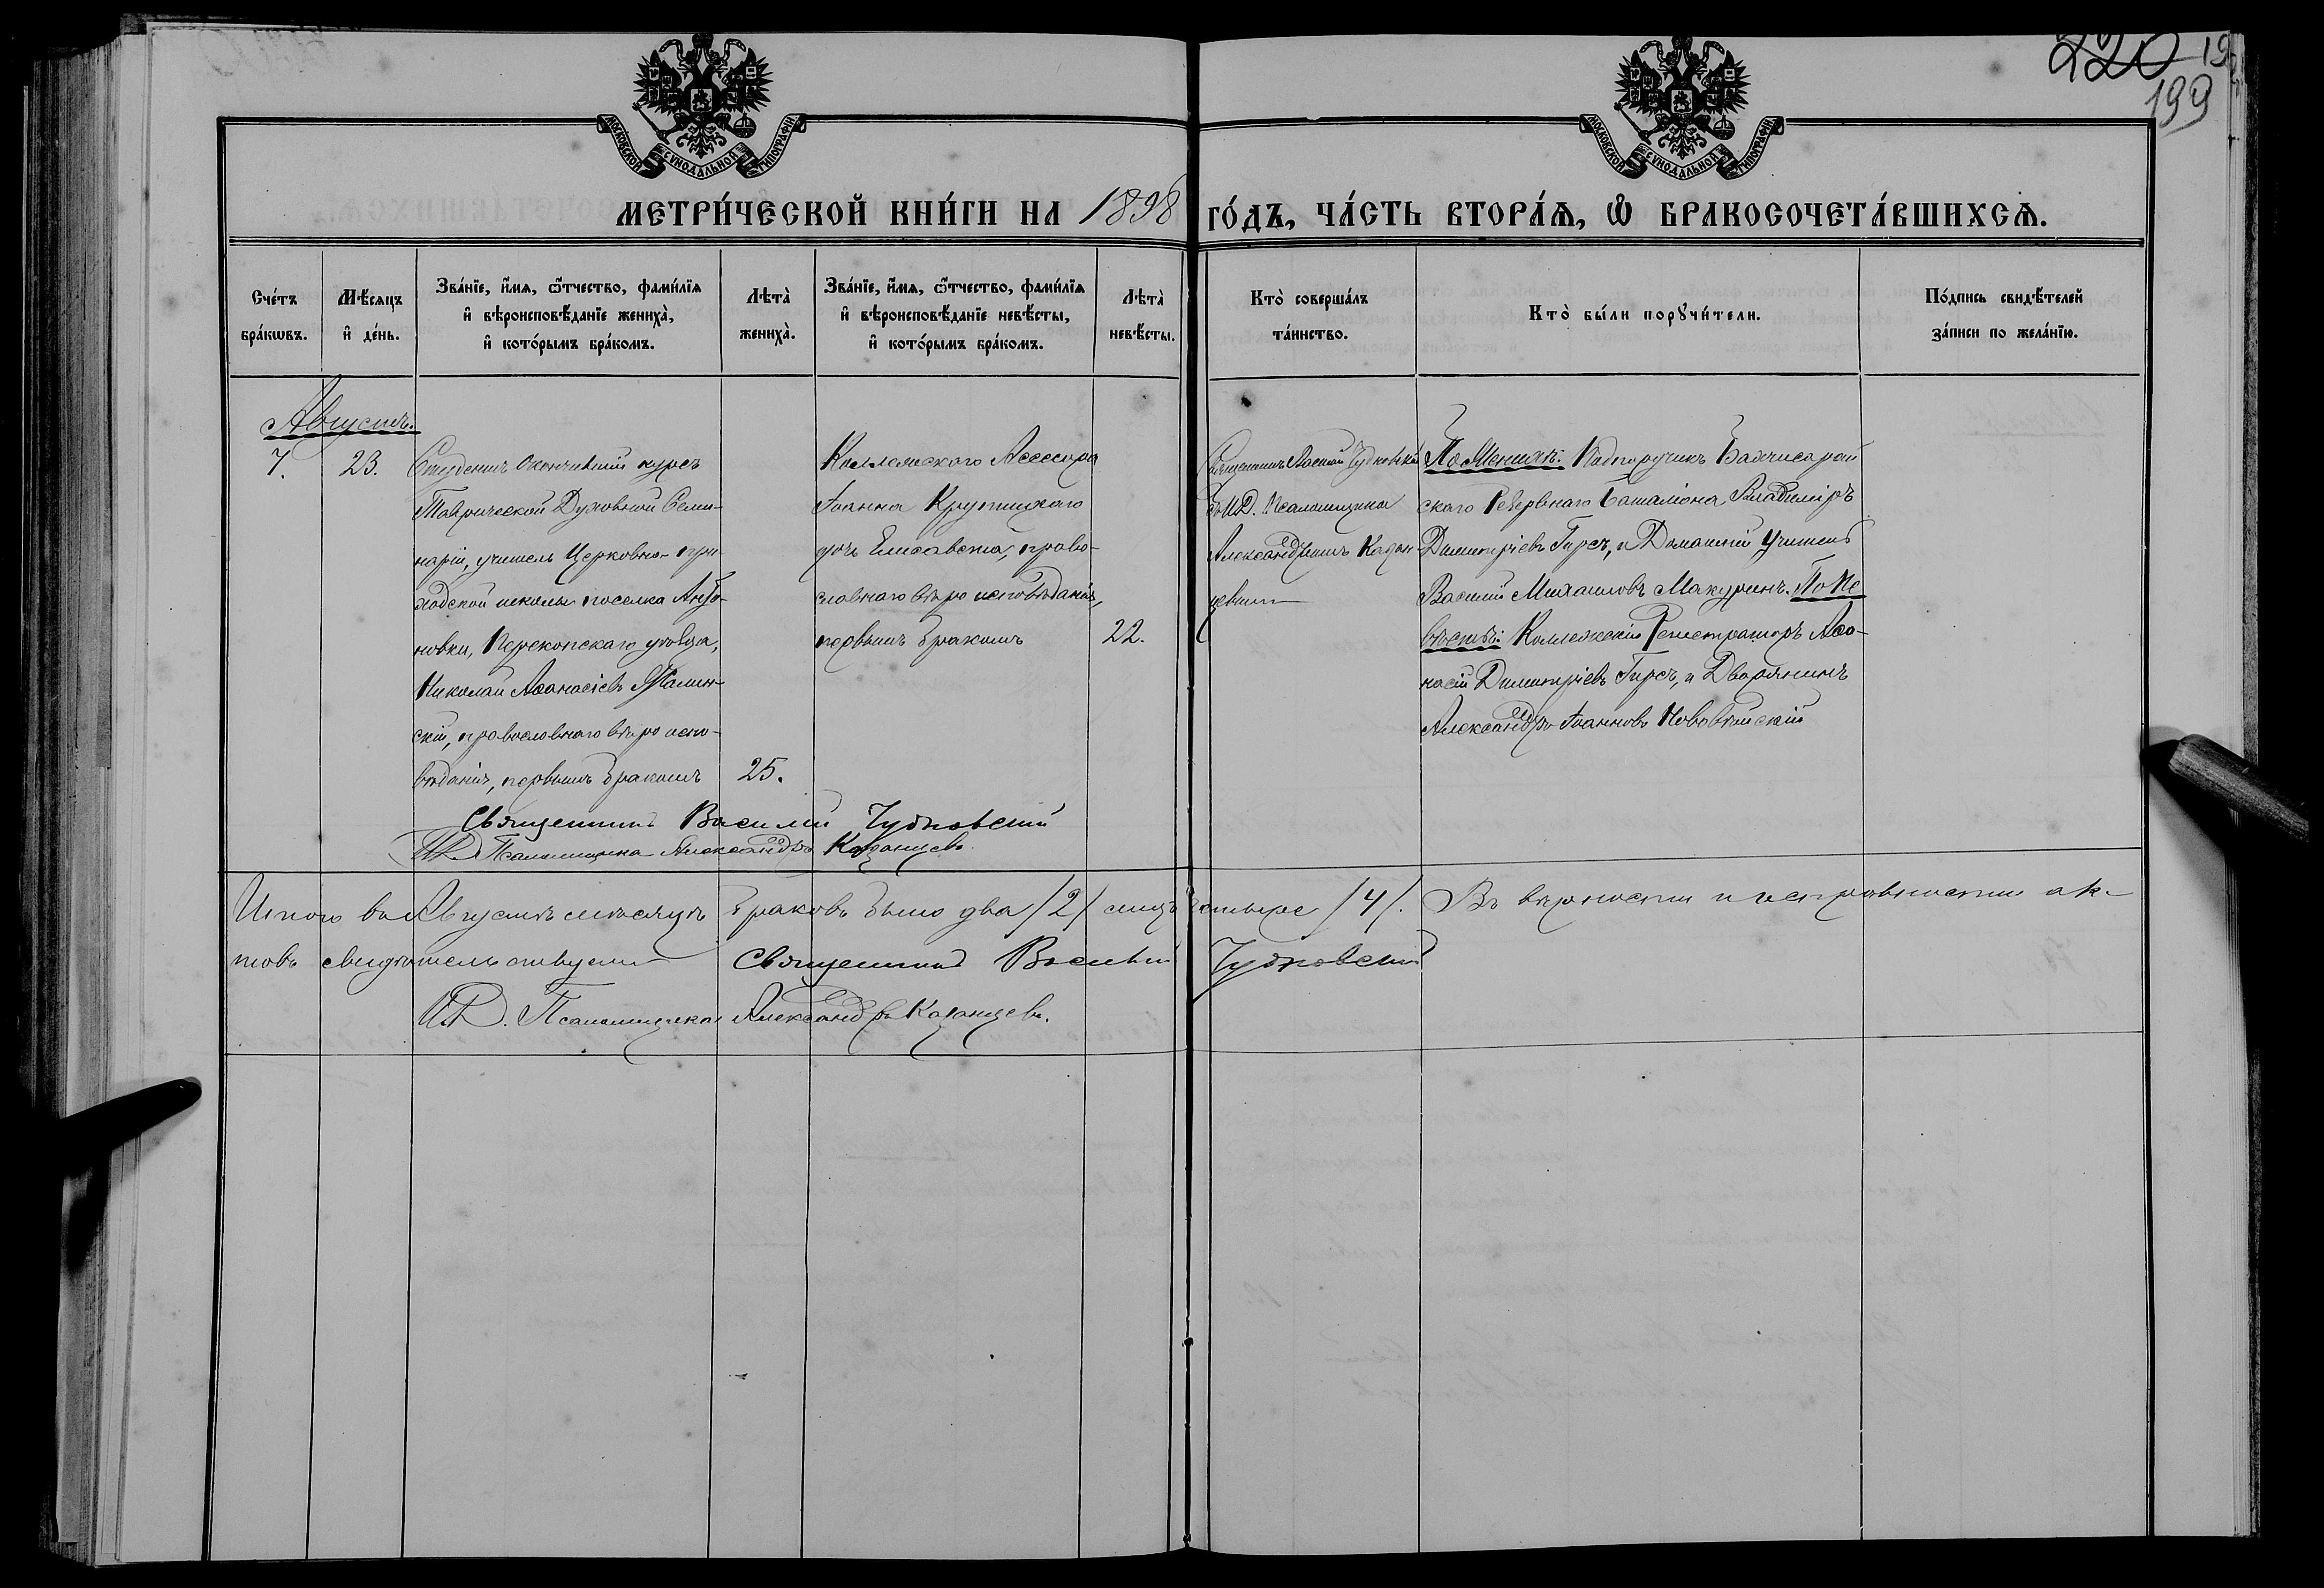 220 19
199
МОСКОВСКОЙ СУНОДАЛЬНОЙ ТИПОГРАФІИ
МОСКОВСКОЙ СУНОДАЛЬНОЙ ТИПОГРАФІИ
МЕТРИ́ЧЕСКОЙ КНИ́ГИ НА 1898 ГО́ДЪ, ЧА́СТЬ ВТОРА́Ѧ, Ѡ҆ БРАКОСОЧЕТА́ВШИХСѦ.
Сче́тъ
бра́кѡвъ.
Мѣ́сяцъ
и҆ де́нь.
Зва́нїе, и҆́мѧ, ѻ҆́тчество, фами́лїѧ
и҆ вѣроисповѣ́данїе жениха̀,
и҆ кото́рымъ бра́комъ.
Лѣта̀
жениха̀.
Зва́нїе, и҆́мѧ, ѻ҆́тчество, фами́лїѧ
и҆ вѣроисповѣ́данїе невѣ́сты,
и҆ кото́рымъ бра́комъ.
Лѣта̀
невѣ́сты.
Кто̀ соверша́лъ
та́инство.
Кто̀ бы́ли порꙋчи́тели.
По́дпись свидѣ́телей
за́писи по жела́нїю.
Августъ.
7.
23.
Студентъ окончившій курсъ
Таврической Духовной Семи-
наріи, учитель Церковно-при-
ходской школы поселка Анто-
новки, Перекопскаго уѣзда,
Николай Аѳанасіевъ
скій, православнаго вѣроиспо-
вѣданія, первымъ бракомъ
25.
Коллежскаго Ассесора
Іоанна Крупицкаго
дочь Елисавета, право-
славнаго вѣроисповѣданія,
первымъ бракомъ
22.
Священникъ Василій Чудновскій
съ И.Д. Псаломщика
Александромъ Казан-
цевымъ
По Женихѣ: Подпоручикъ Бахчисарай
скаго Резервнаго Баталіона Владиміръ
Димитріевъ Гирсъ, и Домашній Учитель
Василій Михаиловъ Макуринъ. По Не
вѣстѣ: Коллежскій Регистраторъ Аѳа-
насій Димитріевъ Гирсъ, и Дворянинъ
Александръ Іоанновъ Нововѣйскій
Священникъ Василій Чудновскій
И.Д. Псаломщика Александръ Казанцевъ
Итого въ Августѣ мѣсяцѣ браковъ было два /2/ лицъ четыре /4/. Въ вѣрности и исправности ак-
товъ свидѣтельствуемъ Священникъ Василій Чудновскій
И.Д. Псаломщика Александръ Казанцевъ.